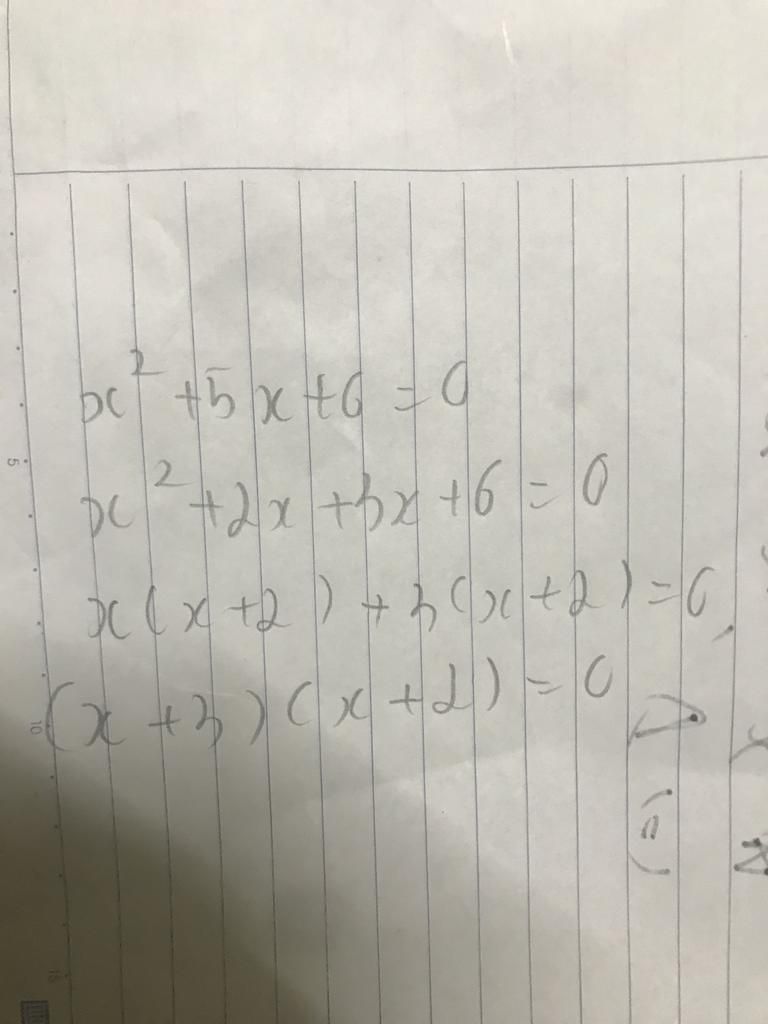 x² + 5x + 6 = 0
x² + 2x + 3x + 6 = 0
x(x + 2) + 3(x + 2) = 0
(x + 3)(x + 2) = 0
5
10
15